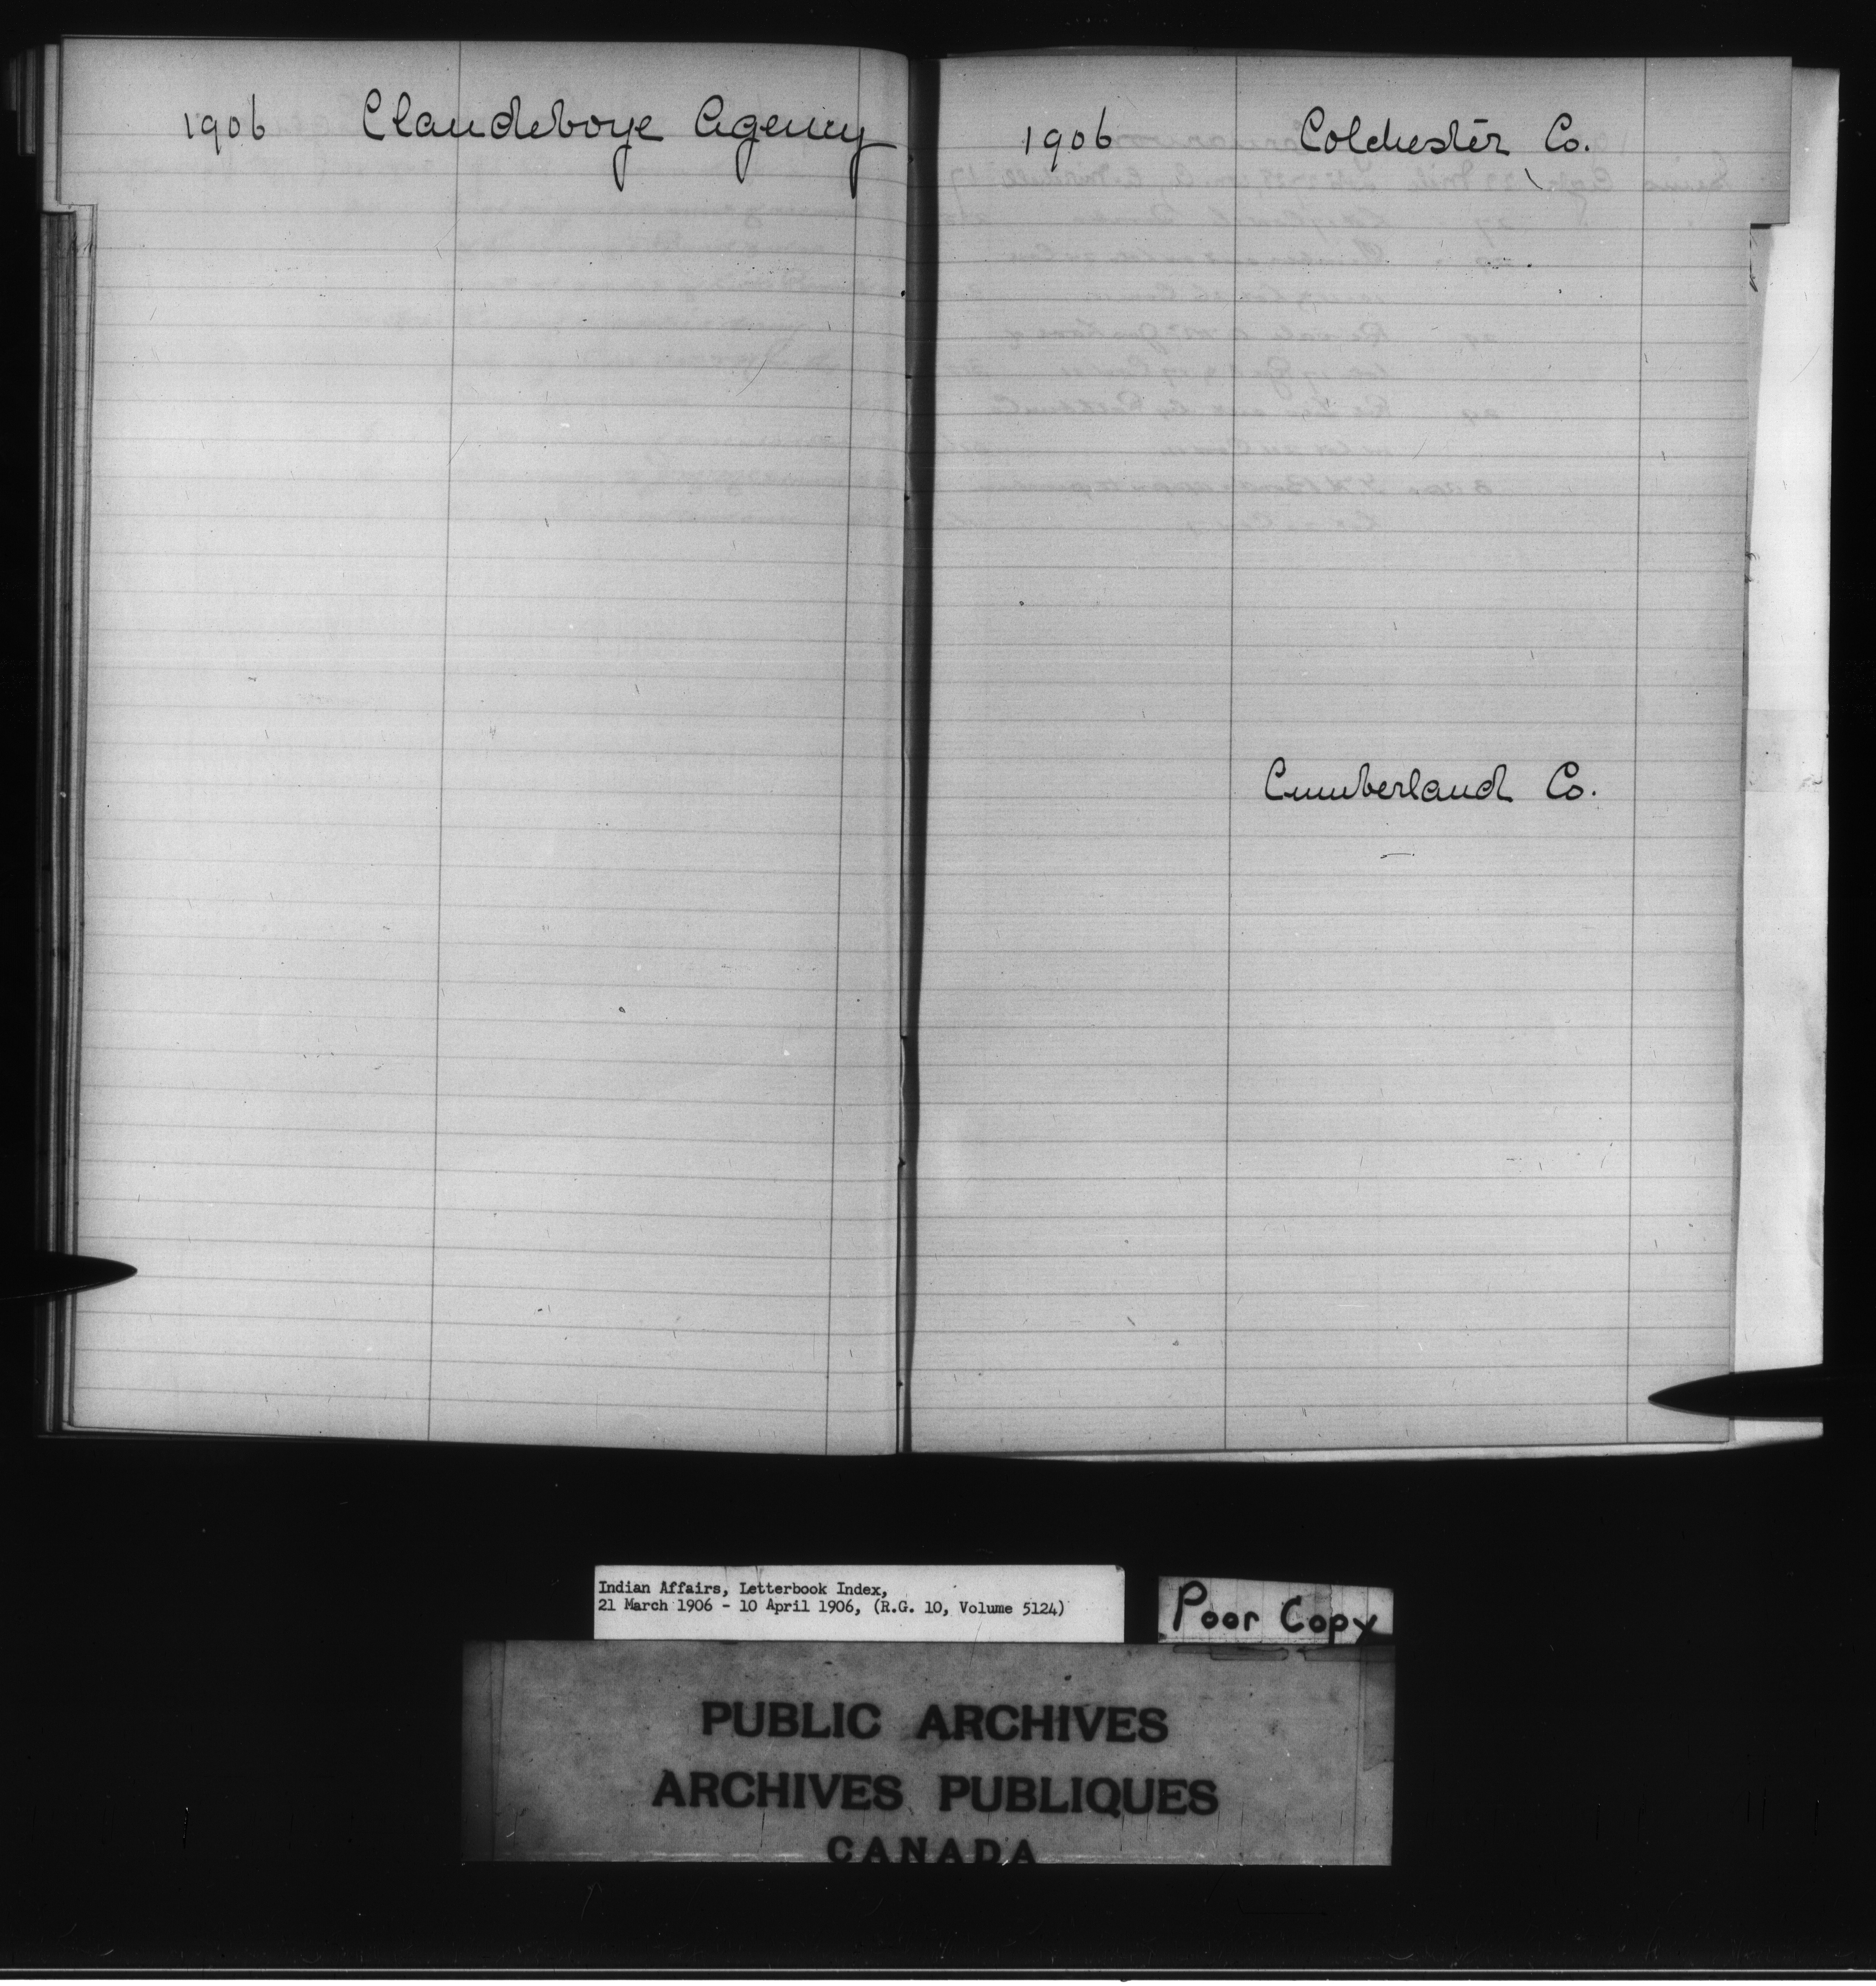 1906 Clandeboye Agency
1906 Colchester Co.
Cumberland Co.
Indian Affairs, Letterbook Index,
21 March 1906 - 10 April 1906, (R.G. 10, Volume 5124)
Poor Copy
PUBLIC ARCHIVES
ARCHIVES PUBLIQUES
CANADA